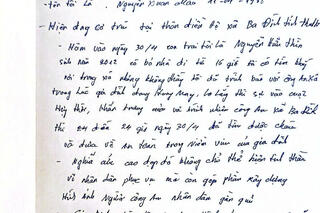 Tên tôi là: Nguyễn Xuân
- Hiện đang cư trú tại thôn điền Hộ xã Ba Đình tỉnh Thanh
- Hôm vào ngày 30/4 con trai tôi là Nguyễn Hữu Thiên
Sinh năm 2012 có bỏ nhà đi từ 16 giờ tôi có tìm khắp
nơi trong xã nhưng không thấy tôi đã trình báo với công An xã
trong lúc gia đình đang hoang mang, lo lắng thì sự vào cuộc
thần trách và trình nhiệm công An xã Ba Đình
thì đến 24 giờ ngày 30/4 đã tìm được cháu
và đưa về An toàn trong niềm vui của gia đình
- Nghĩa cử cao đẹp đó không chỉ thể hiện tinh thần
vì nhân dân phục vụ mà còn góp phần xây dựng
Hình Ảnh Người công An nhân dân gần gũi